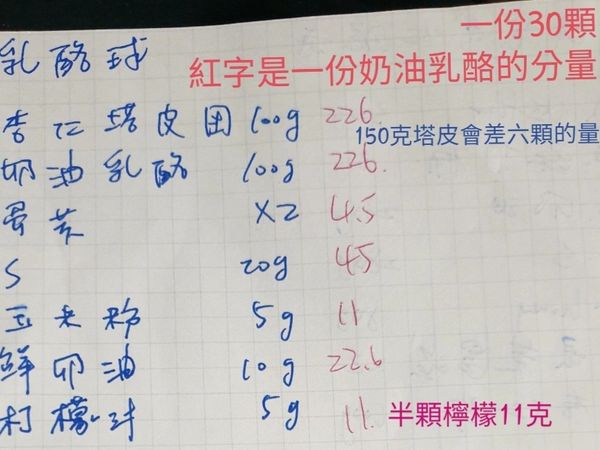 一份30顆
乳酪球
紅字是一份奶油乳酪的分量
杏仁塔皮团 100g 226
150克塔皮會差六顆的量
奶油乳酪 100g 226
蛋黄 X2 4.5
S 20g 45
玉米粉 5g 11
鲜奶油 10g 22.6
柠檬汁 5g 11. 半顆檸檬11克